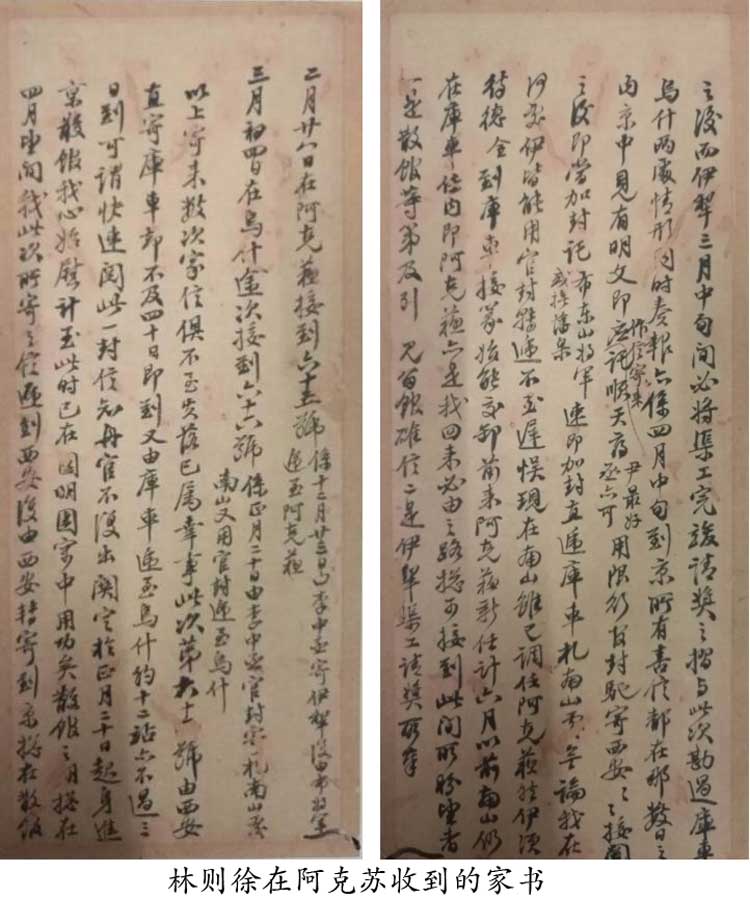 二月廿六日在阿克蘇接到六十五號
係十二月廿三日李中丞寄伊犁後由布將軍
遞至阿克蘇
三月初四日在烏什途次接到六十六號
係正月二十日由李中丞官封寄一札南山處
南山又用官封遞至烏什
以上寄來數次家信俱不至失落已屬幸事此次第六十號由西安
直寄庫車卻不及四十日即到又由庫車遞至烏什約十二站亦不過三
日到可謂快速閱此一封信知舟官不復出關定於正月二十日起身進
京散館我心始慰計至此時已在圓明園寓中用功矣散館之月總在
四月望間我此次所寄之信遞到西安復由西安轉寄到京總在散館
之後而伊犁三月中旬間必將渠工完竣請獎之摺與此次勘過庫車
烏什兩處情形同時奏報亦係四月中旬到京所有喜信都在那數日之
內京中見有明文即作信寄來應託順天府尹最好丞亦可用限行官封馳寄西安西安接閱
之後即當加封託布東山將軍
速即加封直遞庫車札南山處無論我在
何處伊皆能用官封轉遞不至遲悞現在南山雖已調任阿克蘇然伊須
待德全到庫車接篆始能交卸前來阿克蘇新任計六月以前南山仍
在庫車任內即阿克蘇亦是我回來必由之路總可接到此間所盼望者
一是散館等第及引見留館確信二是伊犁渠工請獎所奉
林则徐在阿克苏收到的家书